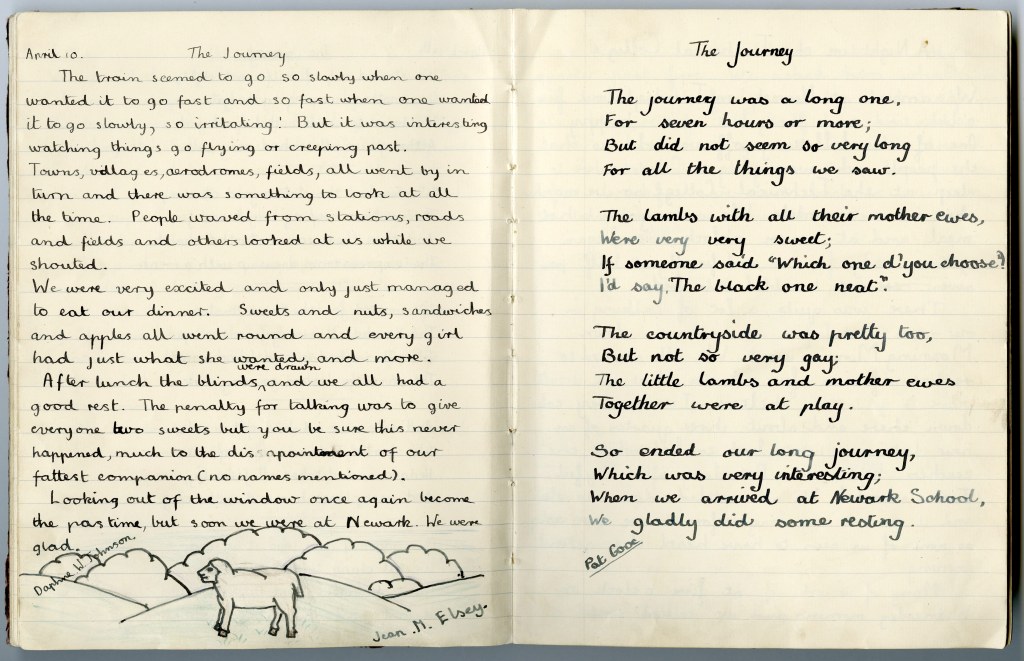 April 10. The Journey
The train seemed to go so slowly when one
wanted it to go fast and so fast when one wanted
it to go slowly, so irritating! But it was interesting
watching things go flying or creeping past.
Towns, villages, aerodromes, fields, all went by in
turn and there was something to look at all
the time. People waved from stations, roads
and fields and others looked at us while we
shouted.
We were very excited and only just managed
to eat our dinner. Sweets and nuts, sandwiches
and apples all went round and every girl
had just what she wanted, and more.
were drawn
After lunch the blinds, and we all had a
good rest. The penalty for talking was to give
everyone two sweets but you be sure this never
happened, much to the disapointment of our
fattest companion (no names mentioned).
Looking out of the window once again become
the pastime, but soon we were at Newark. We were
glad.
Daphne W. Johnson.
Jean M. Elsey.
The Journey
The journey was a long one,
For seven hours or more;
But did not seem so very long
For all the things we saw.
The lambs with all their mother ewes,
Were very very sweet;
If someone said "Which one d'you choose"?
I'd say, "The black one neat".
The countryside was pretty too,
But not so very gay;
The little lambs and mother ewes
Together were at play.
So ended our long journey,
Which was very interesting;
When we arrived at Newark School,
We gladly did some resting.
Pat